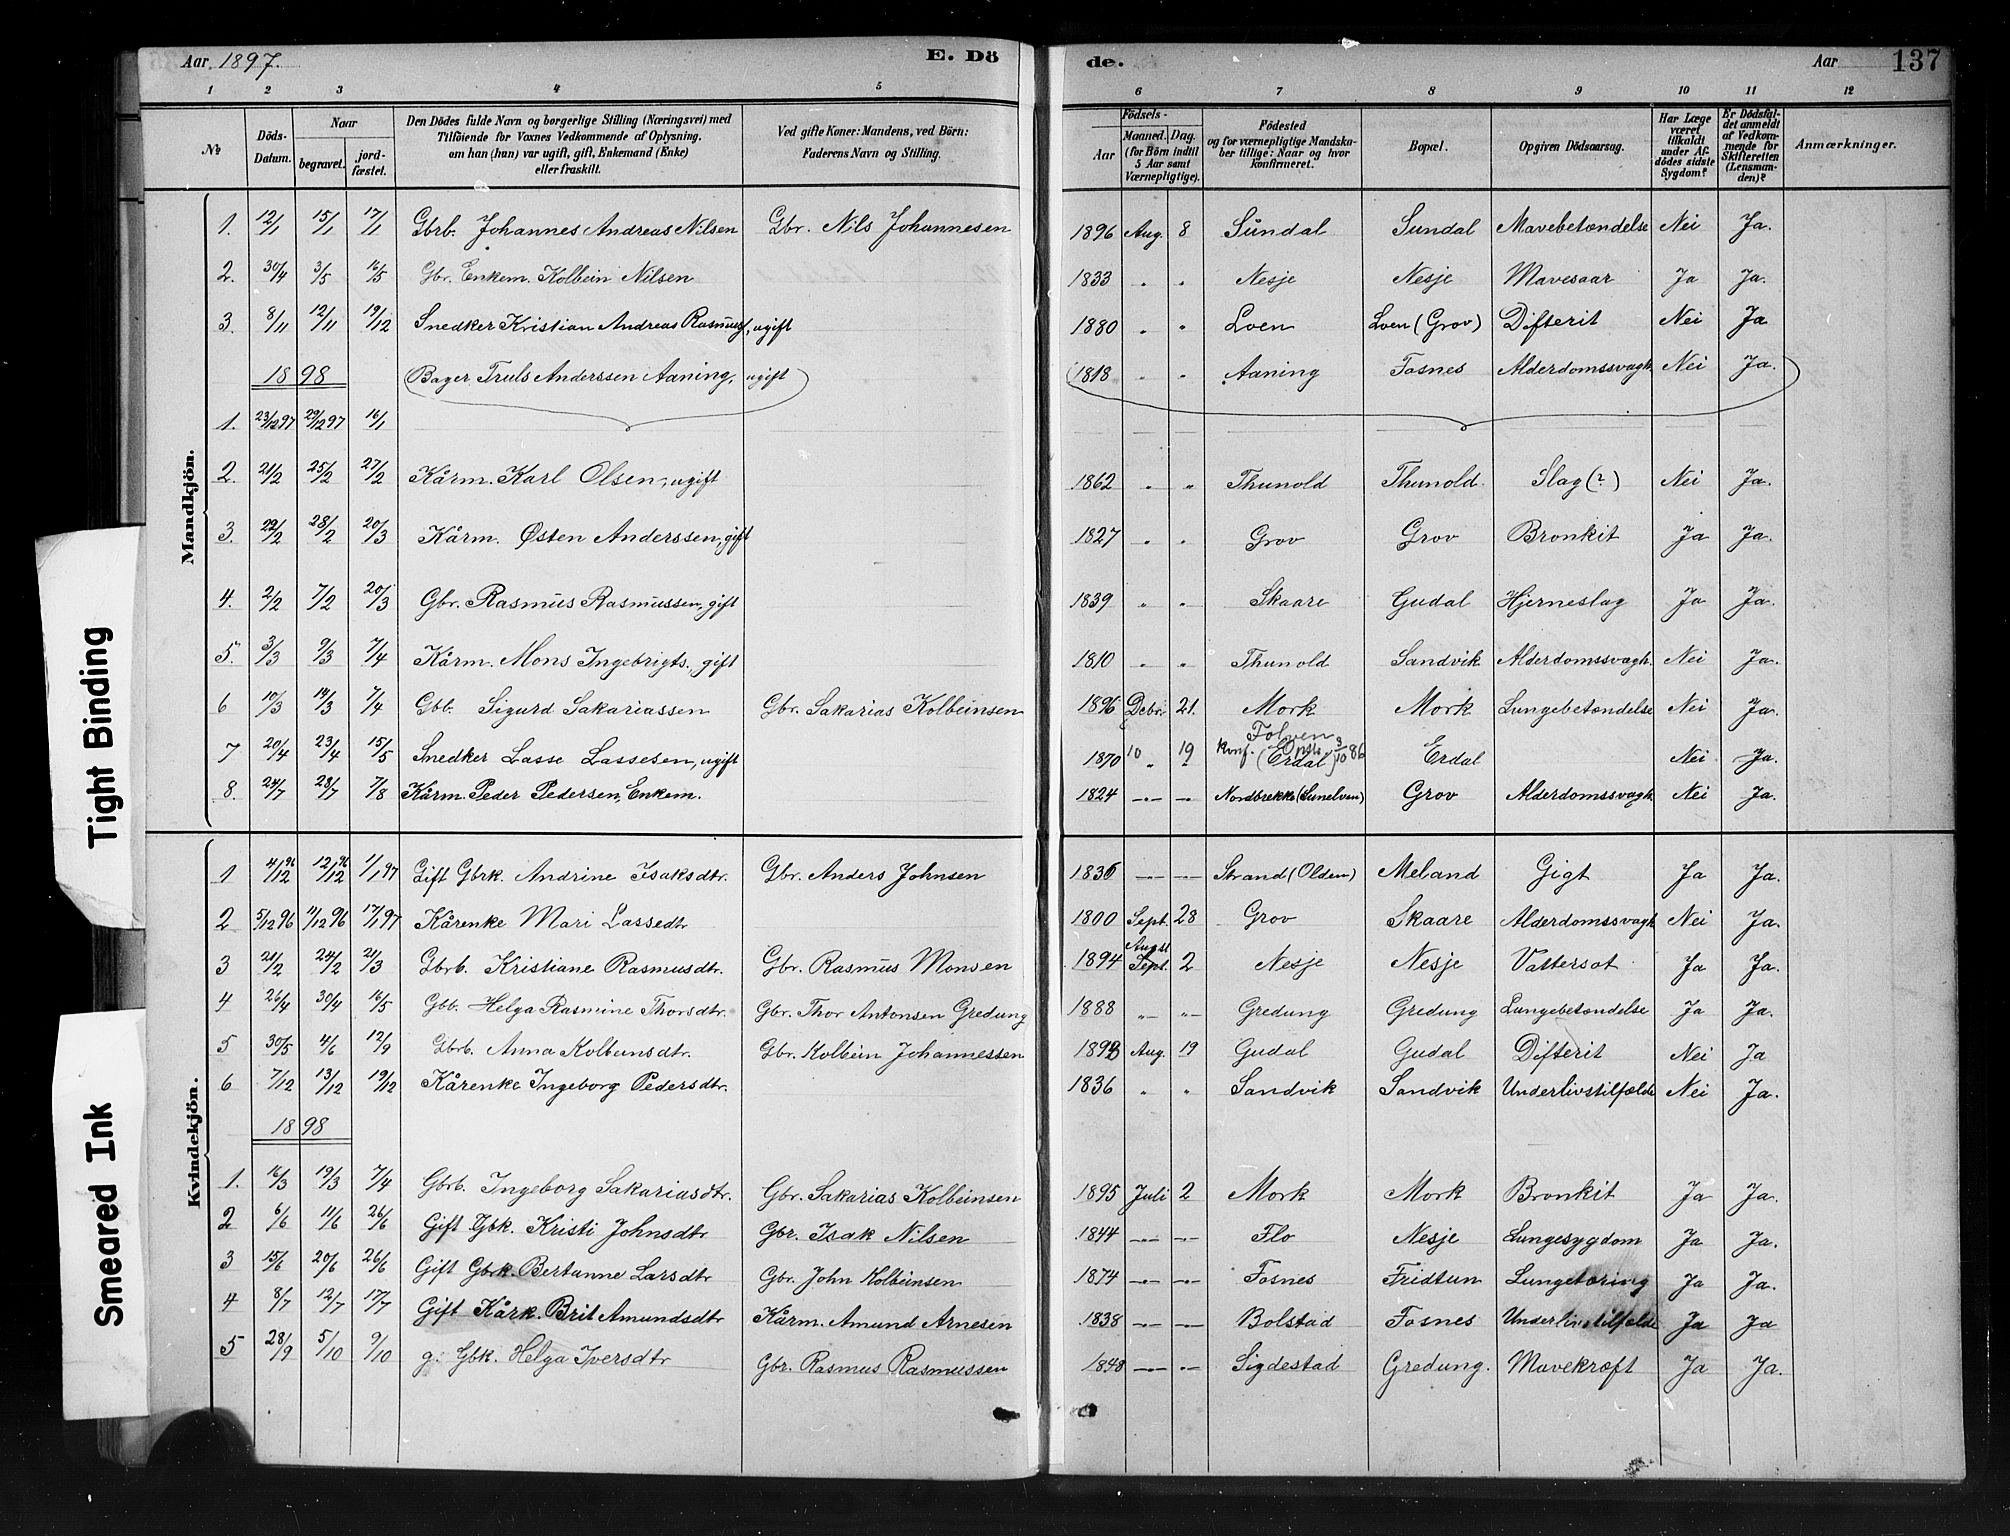 Aar 1897. E. Dö de. Aar 137
1 2 3 4 5 6 7 8 9 10 11 12
№ Döds-Datum. Naar begravet. jordfæstet. Den Dödes fulde Navn og borgerlige Stilling (Næringsvei) med Tilföiende for Voxnes Vedkommende af Oplysning. om han (hun) var ugift, gift, Enkemand (Enke) eller fraskilt. Ved gifte Koner: Mandens, ved Börn: Faderens Navn og Stilling. Födsels- Aar Maaned. Dag. (for Börn indtil 5 Aar samt Værnepligtige). Födested og for værnepligtige Mandskaber tillige: Naar og hvor konfirmeret. Bopæl. Opgiven Dödsaarsag. Har Læge været tilkaldt under Afdödes sidste Sygdom? Er Dödsfaldet anmeldt af Vedkommende for Skifteretten (Lensmanden)? Anmærkninger.
Mandkjön.
1. 12/1 15/1 17/1 Gbrb. Johannes Andreas Nilsen Gbr. Nils Johannesen 1896 Aug. 8 Sundal Sundal Mavebetændelse Nei Ja.
2. 30/4 3/5 16/5 Gbr. Enkem. Kolbein Nilsen 1833 " " Nesje Nesje Mavesaar Ja Ja.
3. 8/11 12/11 19/12 Snedker Kristian Andreas Rasmus, ugift 1880 " " Loen Loen (Grov) Difterit Nei Ja
1898 (Bager Truls Anderssen Aaning, ugift) (1818 " " Aaning Fosnes Alderdomssvagh. Nei Ja.)
1. 23/12 97 29/12 97 16/1
2. 21/2 25/2 27/2 Kårm. Karl Olsen, ugift 1862 " " Thunold Thunold Slag (?) Nei Ja.
3. 22/2 28/2 20/3 Kårm. Østen Anderssen, gift 1827 " " Grov Grov Bronkit Ja Ja.
4. 2/2 7/2 20/3 Gbr. Rasmus Rasmussen, gift 1839 " " Skaare Gudal Hjerneslag Ja Ja.
5. 3/3 9/3 7/4 Kårm. Mons Ingebrigts., gift 1810 " " Thunold Sandvik Alderdomssvagh. Nei Ja.
6 10/3 14/3 7/4 Gbb. Sigurd Sakariassen Gbr. Sakarias Kolbeinsen 1896 Debr. 21. Mork Mork Lungebetændelse Nei Ja.
7 20/4 23/4 15/5 Snedker Lasse Lassesen, ugift 1870 10 19 Folven Konf. (Erdal) 3/10 86 Erdal Nei Ja.
8. 24/7 28/7 7/8 Kårm. Peder Pedersen, Enkem. 1824 —"— —"— Nordbrekke (Sunelven) Grov Alderdomssvagh. Nei Ja.
Kvindekjön.
1 4/12 96 12/12 96 1/1 97 Gift Gbrk. Andrine Isaksdtr. Gbr. Anders Johnsen 1836 —"— —"— Strand (Olden) Meland Gigt Ja Ja.
2 5/12 96 11/12 96 17/1 97 Kårenke Mari Lassedtr 1800 Sept. 28 Grov Skaare Alderdomssvagh Nei Ja.
3 21/2 24/2 21/3 Gbrb. Kristiane Rasmusdtr. Gbr. Rasmus Monsen 1894 Augst Sept. 2 Nesje Nesje Vattersot Ja Ja.
4 26/4 30/4 16/5 Gbb. Helga Rasmine Thorsdtr. Gbr. Thor Antonsen Gredung 1888 " " Gredung Gredung Lungebetændelse Ja Ja.
5 30/5 4/6 12/9 Gbrb. Anna Kolbeinsdtr. Gbr. Kolbein Johannessen 1893 Aug. 19 Gudal Gudal Difterit Nei Ja
6 7/12 13/12 19/12 Kårenke Ingeborg Pedersdtr. 1836 " " Sandvik Sandvik Underlivstilfælde Nei Ja.
1898
1. 16/3 19/3 7/4 Gbrb. Ingeborg Sakariasdtr. Gbr. Sakarias Kolbeinsen 1895 Juli 2 Mork Mork Bronkit Ja Ja.
2 6/6 11/6 26/6 Gift Gbk. Kristi Johnsdtr Gbr. Isak Nilsen 1844 —"— —"— Flo Nesje Lungesygdom Ja Ja.
3 15/6 20/6 26/6 Gift Gbrk. Bertanne Larsdtr Gbr. John Kolbeinsen 1874 —"— —"— Fosnes Fridtun Lungetæring Ja Ja.
4 8/7 12/7 17/7 Gift Kårk. Brit Amundsdtr Kårm. Amund Arnesen 1838 —"— —"— Bolstad Fosnes Underlivstilfælde Ja Ja
5 28/9 5/10 9/10 g. Gbk. Helga Iversdtr Gbr. Rasmus Rasmussen 1848 —"— —"— Sigdestad Gredung. Mavekræft Ja Ja.
Tight Binding
Smeared Ink